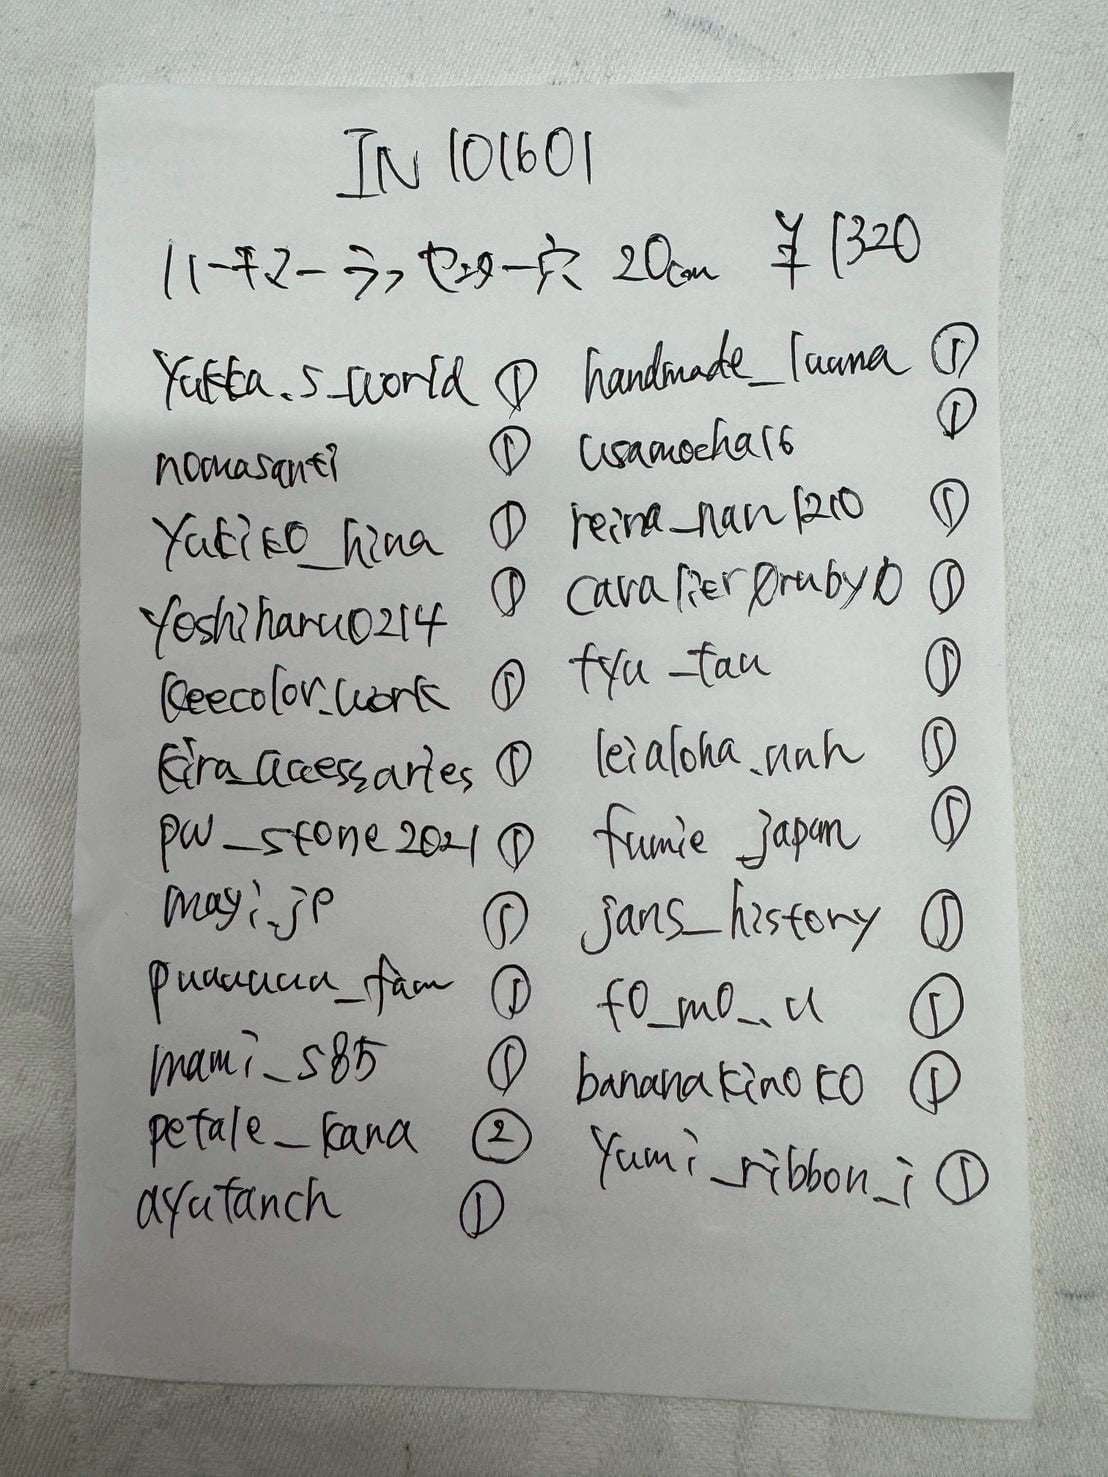 IN 101601
ハーキマーラフセンター穴 20cm ¥1320
yukka.s_world ①
nomasanti ①
yukiko_hina ①
yoshiharu0214 ①
keecolor_work ①
kira_accessaries ①
pw_stone2021 ①
mayi.jp ①
puuuuuu_fam ①
mami_s85 ①
petale_kana ②
ayutanch ①
handmade_luana ①
usamocha16 ①
reina_nan1210 ①
cavalier0ruby0 ①
fyu_tau ①
leialoha.nah ①
fumie_japan ①
jans_history ①
fo_mo_.u ①
bananakinoko ①
yumi_ribbon_i ①